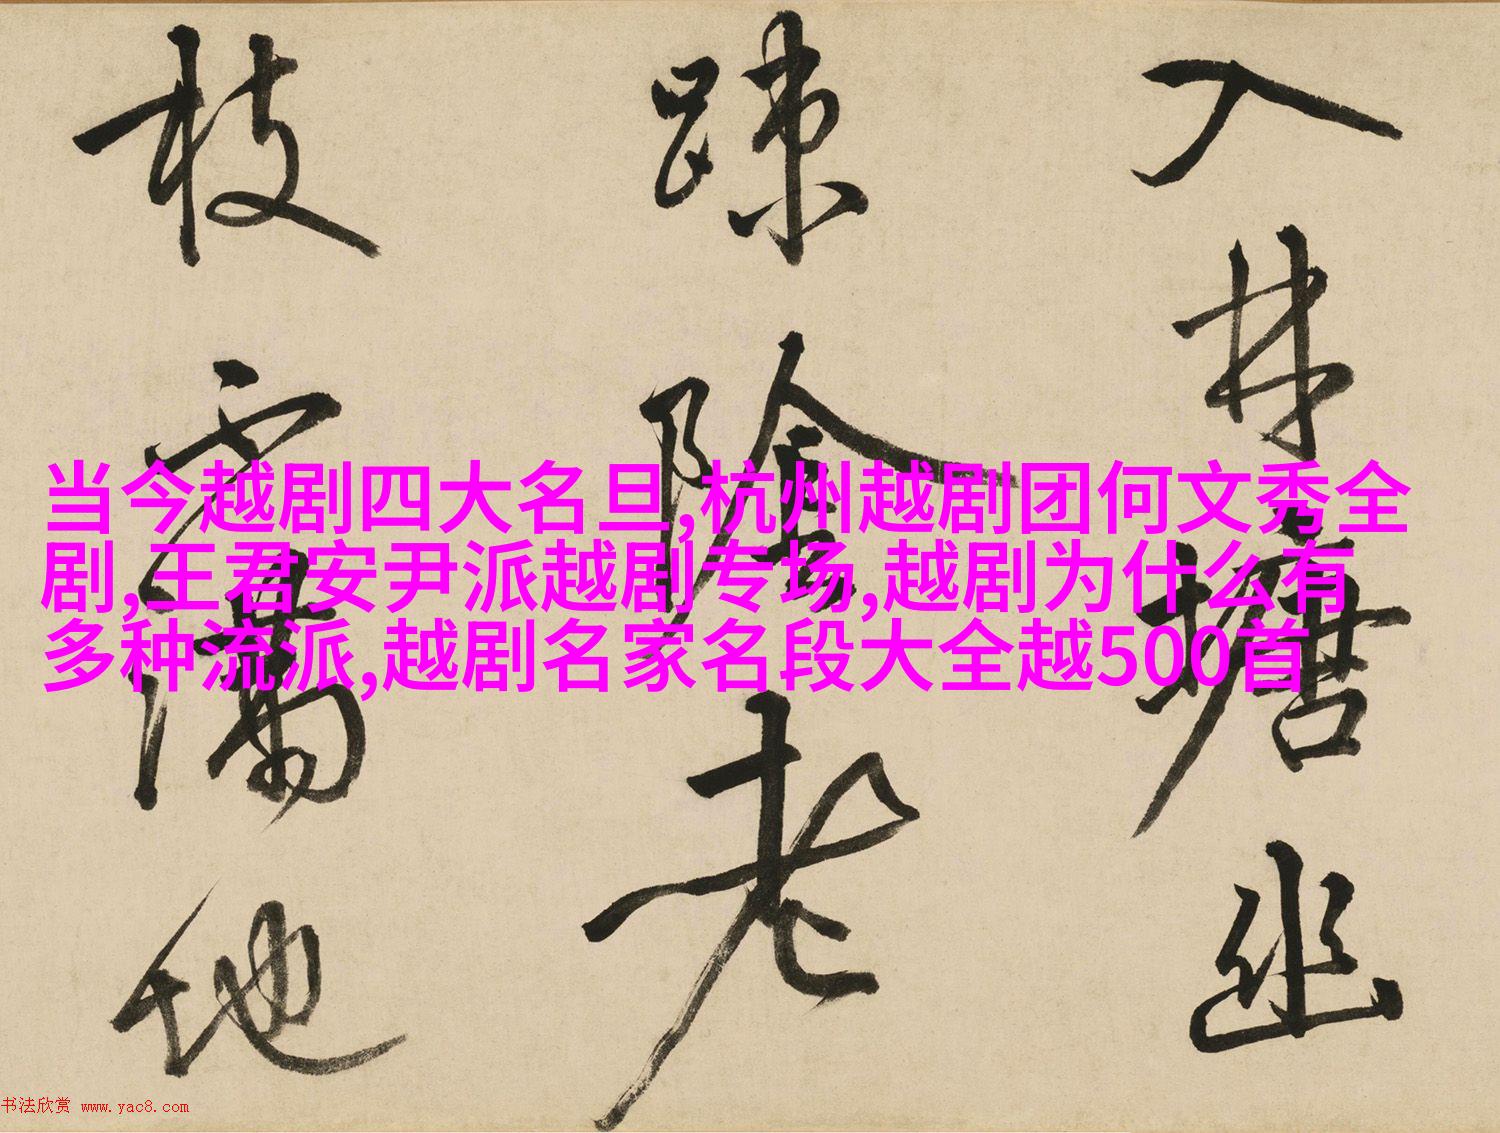 当今越剧四大名旦,杭州越剧团何文秀全
剧,王君安尹派越剧专场,越剧为什么有
多种流派,越剧名家名段大全越500首
入林塘幽
踈陰老
枝滿地
书法欣赏 www.yac8.com